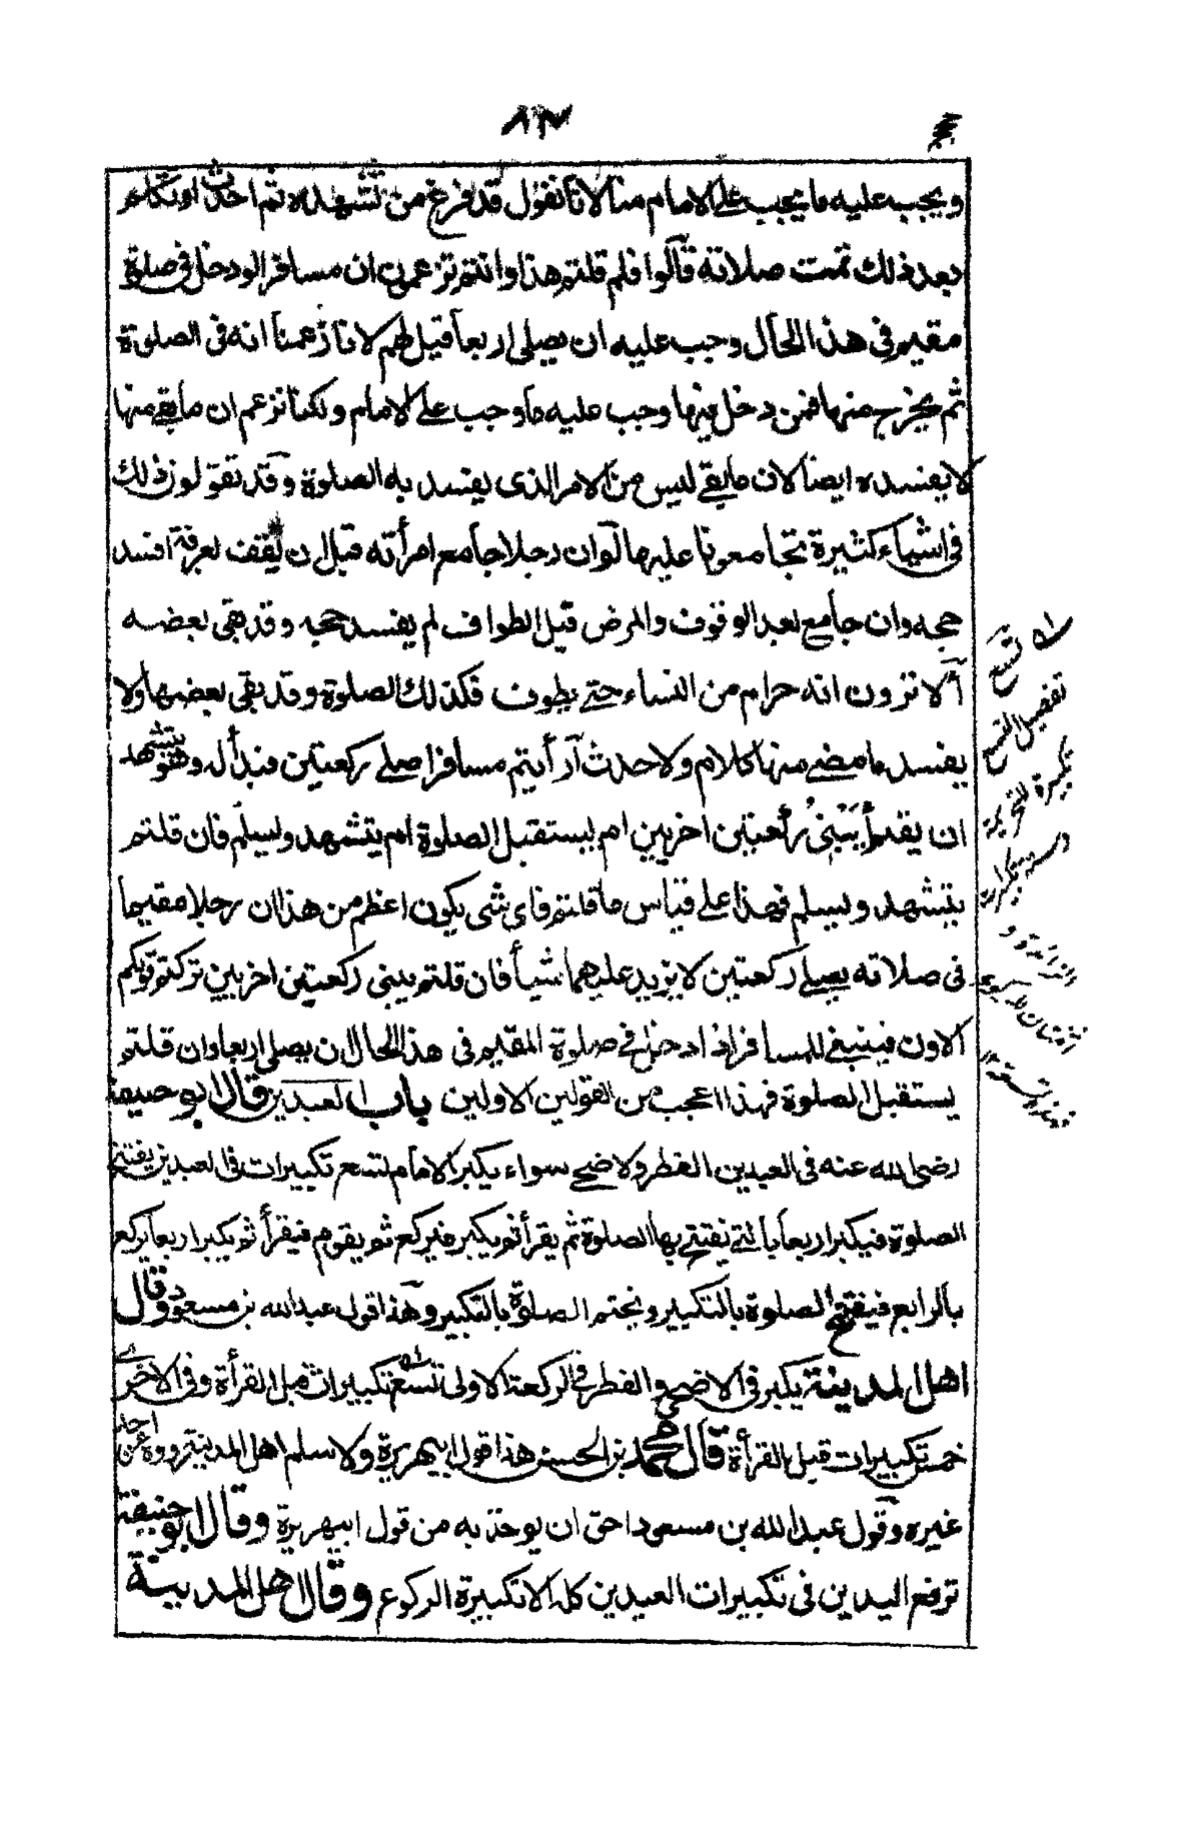 ويجب عليه ما يجب على الامام منا لانا نقول قد فرغ من تشهده ثم احدث او تكلم
بعد ذلك تمت صلاته قالوا فلم قلتم هذا وانتم تزعمون ان مسافرا لو دخل في صلوة
مقيم في هذا الحال وجب عليه ان يصلي اربعا قيل لهم لانا زعمنا انه في الصلوة
ثم يخرج منها فمن دخل فيها وجب عليه ما وجب على الامام ولكنا نزعم ان ما بقي منها
لا يفسده ايضا لان ما بقي ليس من الامر الذي يفسد به الصلوة وقد تقولون ذلك
في اشياء كثيرة تجامعونا عليها لو ان رجلا جامع امرأته قبل ان يقف بعرفة افسد
حجه وان جامع بعد الوقوف والمرض قبل الطواف لم يفسد حجه وقد بقي بعضه
ألا ترون انه حرام من النساء حتى يطوف فكذلك الصلوة وقد بقي بعضها ولا
يفسد ما مضى منها كلام ولا حدث أرأيتم مسافرا صلى ركعتين فبدأ له وهو يتشهد
ان يقدم أيبني ركعتين اخريين ام يستقبل الصلوة ام يتشهد ويسلم فان قلتم
يتشهد ويسلم فهذا على قياس ما قلتم فاي شي يكون اعظم من هذا ان رجلا مقيما
في صلاته يصلي ركعتين لا يزيد عليهما شيأ فان قلتم يبني ركعتين اخريين تركتم قولكم
الاول فينبغي للمسافر اذا دخل في صلوة المقيم في هذا الحال ان يصلي اربعا وان قلتم
يستقبل الصلوة فهذا اعجب من القولين الاولين باب العيدين قال ابو حنيفة
رضي الله عنه في العيدين الفطر والاضحى سواء يكبر الامام تسع تكبيرات في العيدين يفتتح
الصلوة فيكبر اربعا بالتي يفتتح بها الصلوة ثم يقرأ ثم يكبر فيركع ثم يقوم فيقرأ ثم يكبر اربعا يركع
بالرابع فيفتتح الصلوة بالتكبير ويختم الصلوة بالتكبير وهذا قول عبد الله بن مسعود وقال
اهل المدينة يكبر في الاضحى والفطر في الركعة الاولى تسع تكبيرات قبل القرأة وفي الاخرى
خمس تكبيرات قبل القرأة قال محمد بن الحسن هذا قول ابيهريرة ولا سلم اهل المدينة رووه عن احد
غيره وقول عبد الله بن مسعود احق ان يوخذ به من قول ابيهريرة وقال ابو حنيفة
ترفع اليدين في تكبيرات العيدين كلها لا تكبيرة الركوع وقال اهل المدينة
تسع
تفصيل التسع
تكبيرة التحريمة
وستة تكبيرات
الزائدة و
اثنتان للركوع